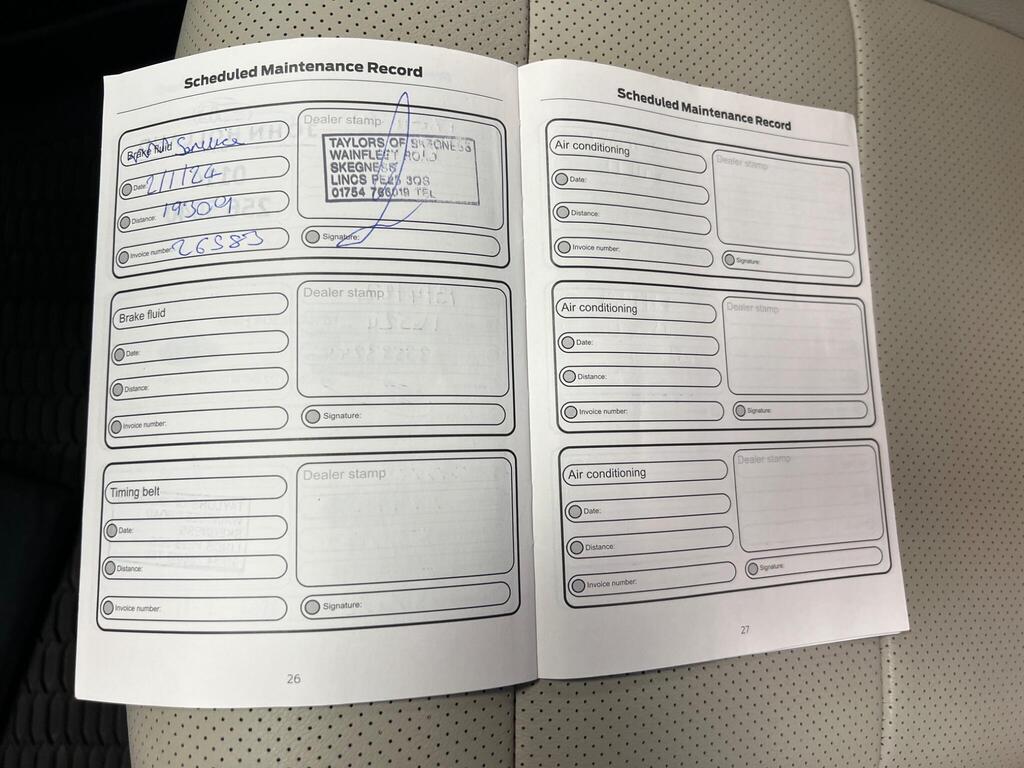 Scheduled Maintenance Record
Brake fluid
Service
Date: 2/1/24
Distance: 19309
Invoice number: 26383
Dealer stamp
TAYLORS OF SKEGNESS
WAINFLEET ROAD
SKEGNESS
LINCS PE25 3QS
01754 766019 TEL
Signature:
Brake fluid
Date:
Distance:
Invoice number:
Dealer stamp
Signature:
Timing belt
Date:
Distance:
Invoice number:
Dealer stamp
Signature:
26
Scheduled Maintenance Record
Air conditioning
Date:
Distance:
Invoice number:
Dealer stamp
Signature:
Air conditioning
Date:
Distance:
Invoice number:
Dealer stamp
Signature:
Air conditioning
Date:
Distance:
Invoice number:
Dealer stamp
Signature:
27